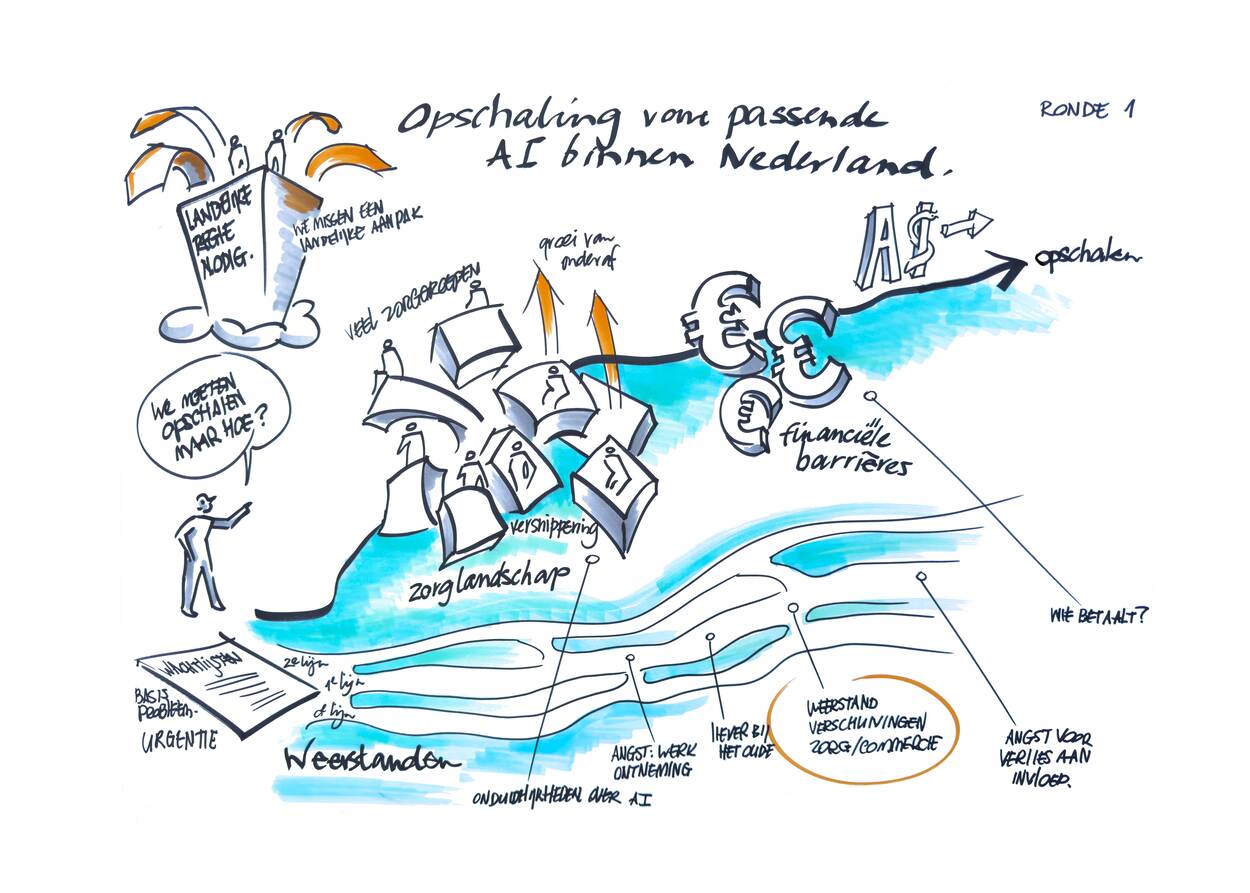 Opschaling van passende
AI binnen Nederland.
RONDE 1
LANDELIJKE
REGIE
NODIG.
WE MISSEN EEN
LANDELIJKE AANPAK
VEEL ZORGGROEPEN
groei van
onderaf
AI
opschalen
WE MOETEN
OPSCHALEN
MAAR HOE?
€
€
€
financiële
barrières
versnippering
zorglandschap
WIE BETAALT?
WACHTLIJSTEN
BASIS
PROBLEEM.
URGENTIE
2e lijn
1e lijn
0e lijn
Weerstanden
ONDUIDELIJKHEDEN OVER AI
ANGST: WERK
ONTNEMING
LIEVER BIJ
HET OUDE
WEERSTAND
VERSCHUIVINGEN
ZORG/COMMERCIE
ANGST VOOR
VERLIES AAN
INVLOED.